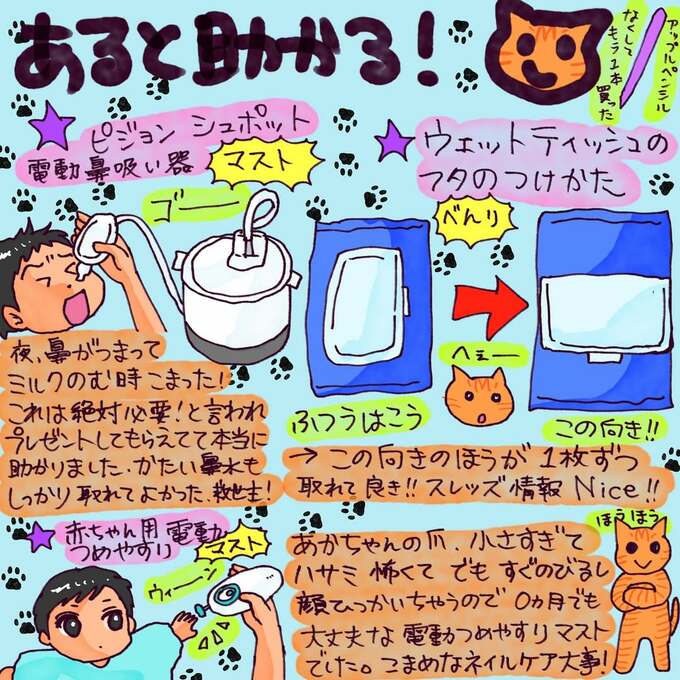 あると助かる!
アップルペンシル
なくして
もう1本
買った
★ピジョン シュポット
電動鼻吸い器
マスト
ゴー
★ウェットティッシュの
フタのつけかた
べんり
へぇー
ふつうはこう
この向き!!
夜、鼻がつまって
ミルクのむ時こまった!
これは絶対必要!と言われ
プレゼントしてもらえてて本当に
助かりました、かたい鼻水も
しっかり取れてよかった、救世主!
→この向きのほうが1枚ずつ
取れて良き!!スレッズ情報 Nice!!
★赤ちゃん用電動
つめやすり
マスト
ウィーン
あかちゃんの爪、小さすぎて
ハサミ怖くて でも すぐのびるし
顔ひっかいちゃうので 0ヵ月でも
大丈夫な電動つめやすりマスト
でした。こまめなネイルケア大事!
ほうほう